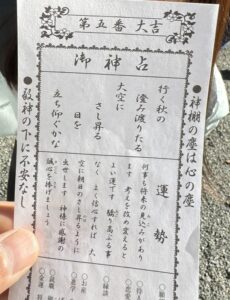 第五番 大吉
御神占
●神棚の塵は心の塵
行く秋の
澄み渡りたる
大空に
さし昇る
日を
立ち仰ぐかな
●敬神の下に不安なし
運勢
何事も将来の見込みがあり
ます 考えを改め変えると
よい運です 驕り高ぶる事
なく よく信心すれば 大
空に朝日のさし昇るように
出世します 神様に感謝の
誠心を捧げましょう